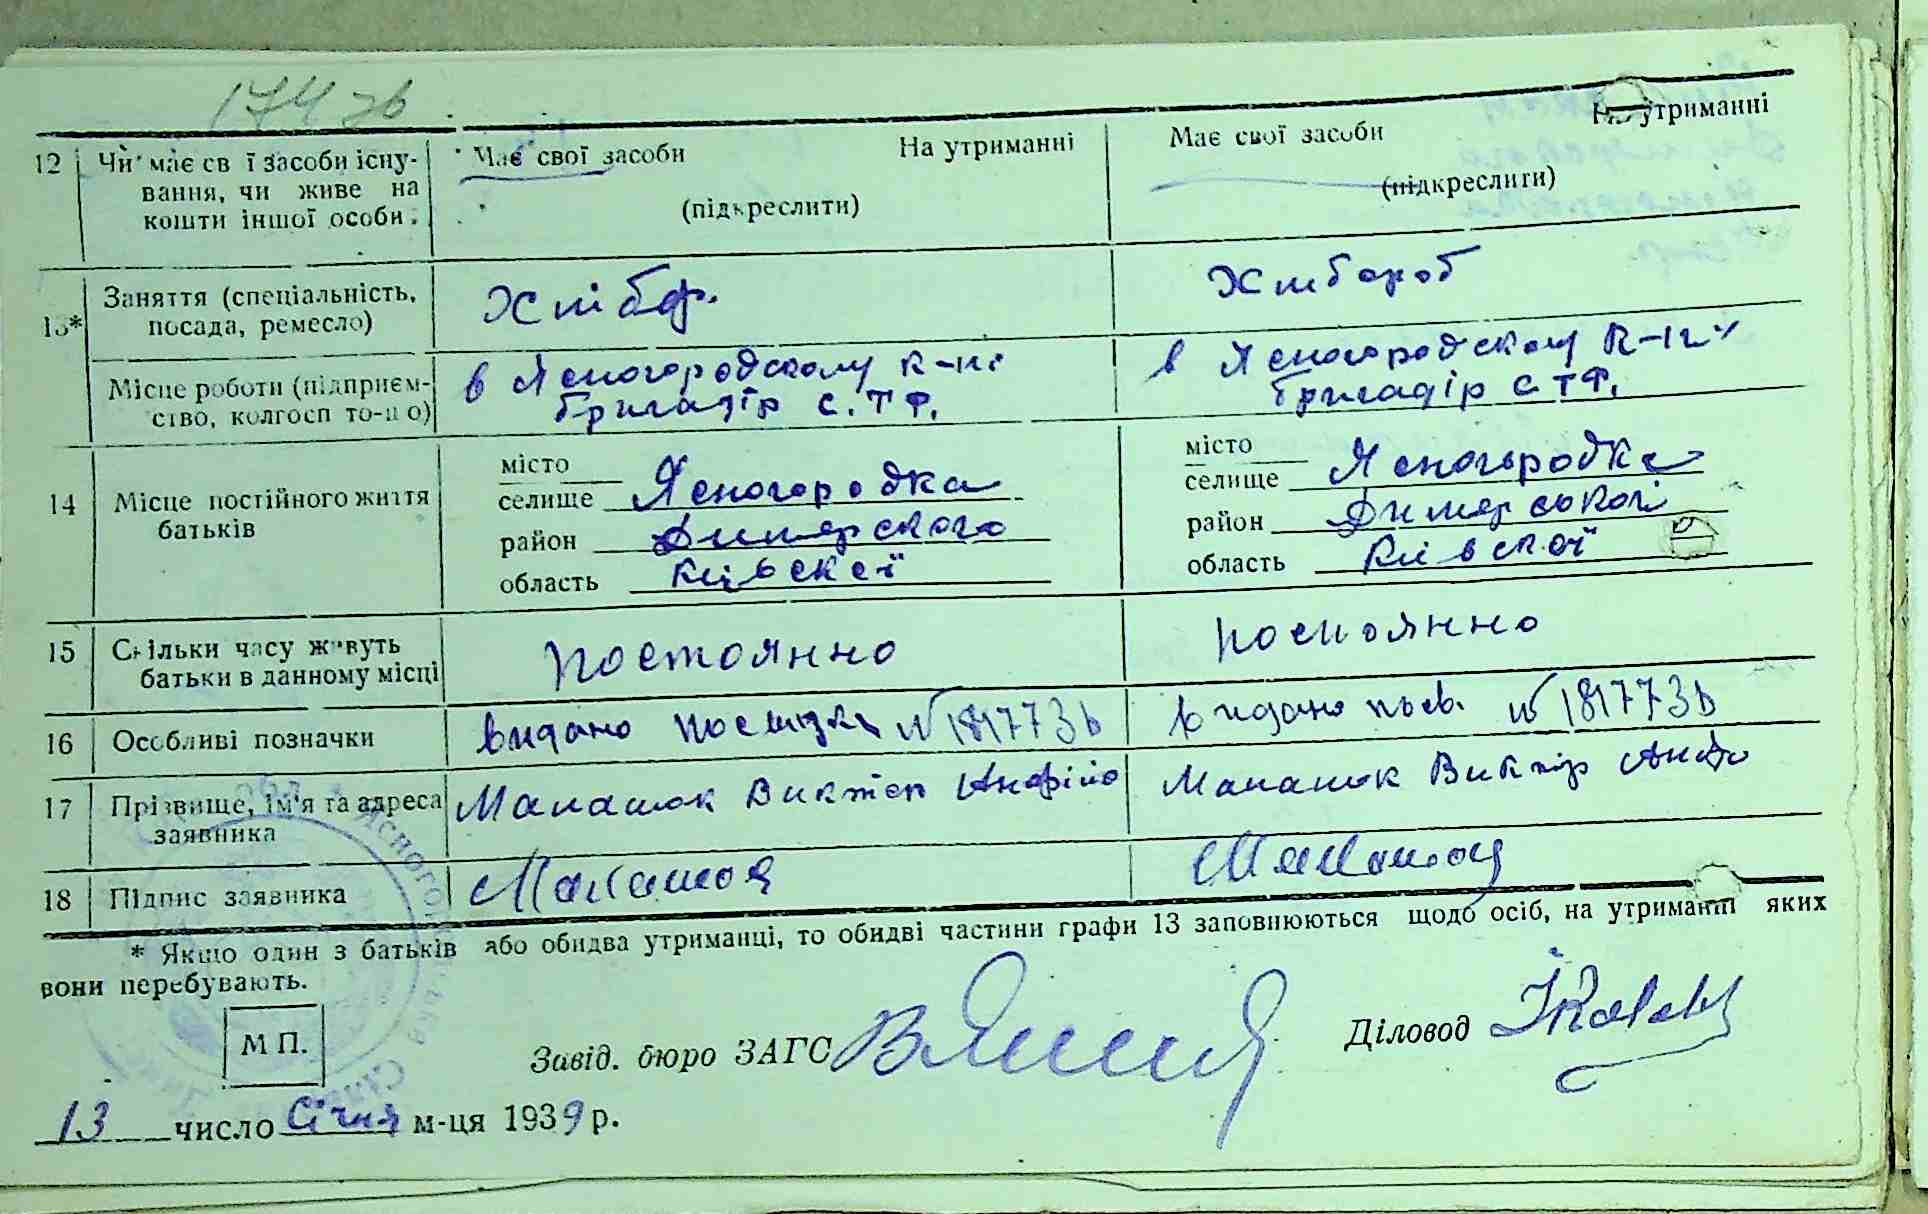 174 зв
12 Чи має св ї засоби існу-
вання, чи живе на
кошти іншої особи.
Має свої засоби На утриманні
(підкреслити)
Має свої засоби На утриманні
(підкреслити)
13* Заняття (спеціальність,
посада, ремесло)
Хлібор.
Хлібороб
Місце роботи (підприєм-
ство, колгосп то-що)
в Ясногородскому к-пі
бригадір С.Т.Ф.
в Ясногородскому к-пі
бригадір С.Т.Ф.
14 Місце постійного життя
батьків
місто
селище Ясногородка
район Димерского
область Київскої
місто
селище Ясногородка
район Димерської
область Київської
15 Скільки часу живуть
батьки в данному місці
постоянно
постоянно
16 Особливі позначки
видано №
видано посв. №
17 Прізвище, ім'я та адреса
заявника
Малашок Виктор Анфіло
Малашок Виктор
18 Підпис заявника
Малашок
Малашок
* Якщо один з батьків або обидва утриманці, то обидві частини графи 13 заповнюються щодо осіб, на утриманні яких
вони перебувають.
М П.
Завід. бюро ЗАГС
Діловод
13 число Січня м-ця 1939 р.